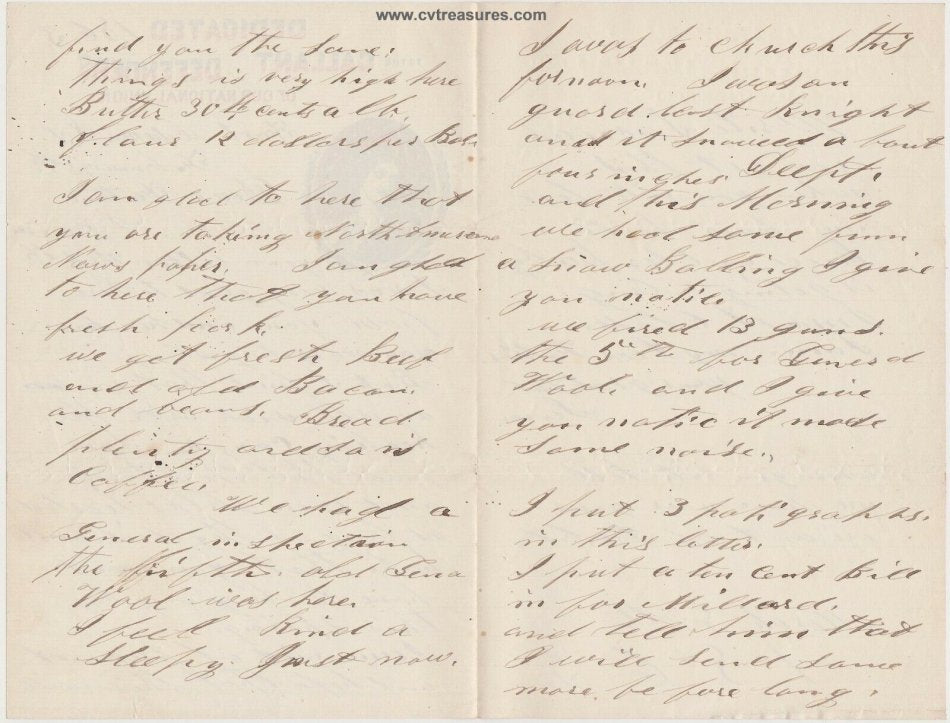 www.cvtreasures.com
find you the same.
things is very high here
Butter 30 cents a lb.
flour 12 dollars per Bol.
I am glad to here that
you are taking North American
News paper. I am glad
to here that you have
fresh pork.
we get fresh Beef
and old Bacon.
and beans. Bread
plenty and so is
Coffee.
We had a
General inspection
the fifth. old Gena
Wool was here.
I feel Kind a
Sleepy Just now.
I was to church this
fornoon. I was on
guard last Knight
and it snowed a bout
four inches Deept.
and this Morning
we had some funn
a snow Balling I give
you notice.
we fired 13 guns.
the 5th for General
Wool. and I give
you notice it made
some noise.
I put 3 potigraphs.
in this letter.
I put a ten cent Bill
in for Millard.
and tell him that
I will send some
more be fore long.
DEDICATED
GALLANT DEFENDERS